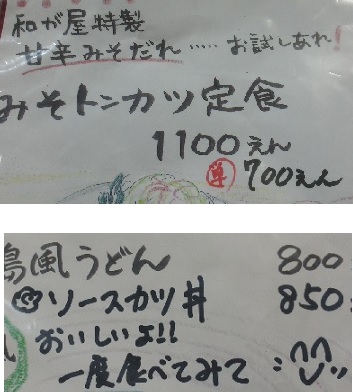 和が屋特製
甘辛みそだれ…… お試しあれ!
みそトンカツ定食
1100えん
単 700えん
島風うどん 800
ソースカツ丼 850
おいしいよ!!
一度食べてみて